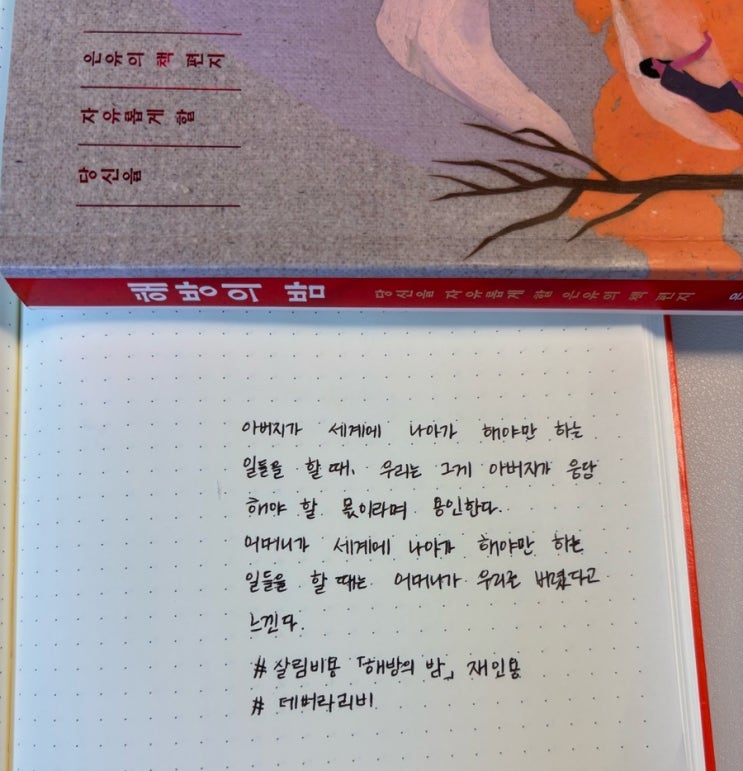 은유의 책 편지
자유롭게 할
당신을
해방의 밤 당신을 자유롭게 할 은유의 책 편지 은
아버지가 세계에 나아가 해야만 하는
일들을 할 때, 우리는 그게 아버지가 응당
해야 할 몫이라며 용인한다.
어머니가 세계에 나아가 해야만 하는
일들을 할 때는 어머니가 우리를 버렸다고
느낀다.
# 살림비용 「해방의 밤」 재인용
# 데버라리비